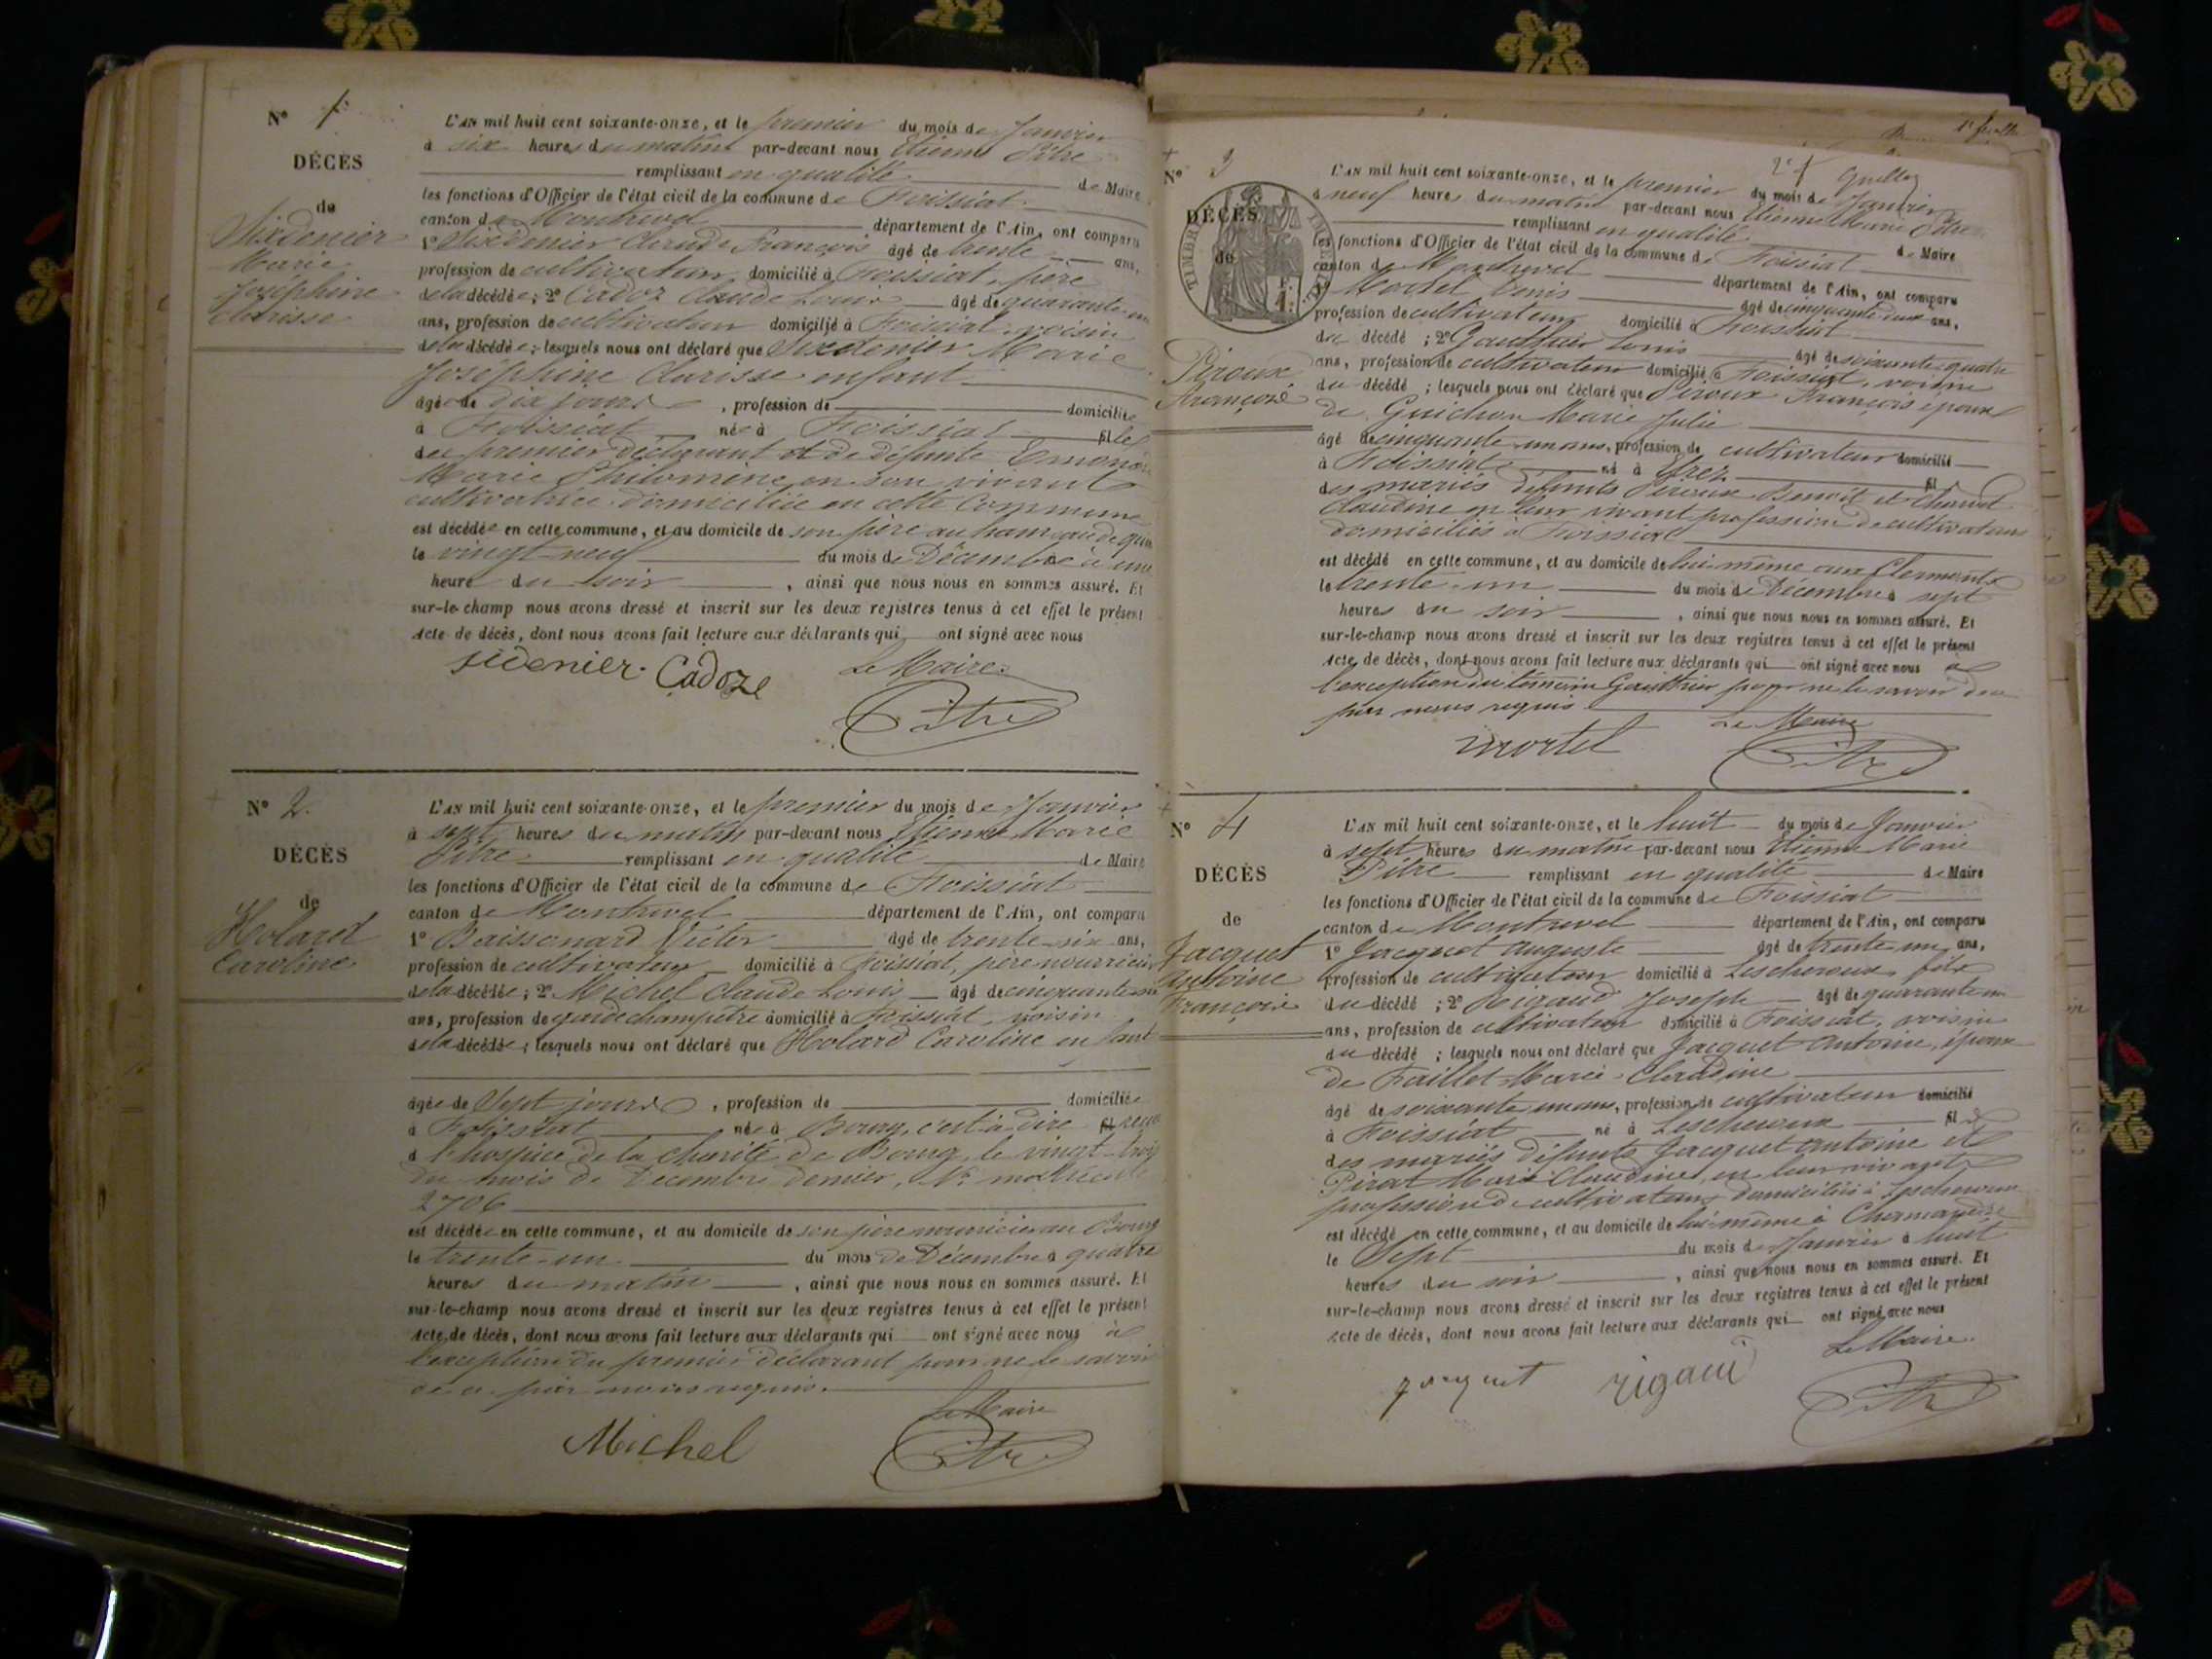 N° 1
DÉCÈS
de
Sixdenier
Marie
Joséphine
Clarisse
L'AN mil huit cent soixante-onze, et le premier du mois de Janvier
à six heures du matin par-devant nous Etienne Pitre
remplissant en qualité de Maire
les fonctions d'Officier de l'état civil de la commune de Foissiat
canton de Montrevel département de l'Ain, ont comparu
1° Sixdenier Claude François âgé de trente ans,
profession de cultivateur domicilié à Foissiat, père
de la décédée; 2° Cadoz Claude Louis âgé de quarante
ans, profession de cultivateur domicilié à Foissiat, voisin
de la décédée; lesquels nous ont déclaré que Sixdenier Marie
Joséphine Clarisse enfant
âgée de dix jours, profession de domiciliée
à Foissiat née à Foissiat fille
du premier déclarant et de défunte
Marie Philomène en son vivant
cultivatrice domiciliée en cette Commune
est décédée en cette commune, et au domicile de son père au hameau de
le vingt-neuf du mois de Décembre à une
heure du soir, ainsi que nous nous en sommes assuré. Et
sur-le-champ nous avons dressé et inscrit sur les deux registres tenus à cet effet le présent
Acte de décès, dont nous avons fait lecture aux déclarants qui ont signé avec nous
Sidenier. Cadoze Le Maire
Pitre
N° 2.
DÉCÈS
de
Holard
Caroline
L'AN mil huit cent soixante-onze, et le premier du mois de Janvier
à sept heures du matin par-devant nous Etienne Marie
Pitre remplissant en qualité de Maire
les fonctions d'Officier de l'état civil de la commune de Foissiat
canton de Montrevel département de l'Ain, ont comparu
1° Baissonard Victor âgé de trente-six ans,
profession de cultivateur domicilié à Foissiat, père nourricier
de la décédée; 2° Michel Claude Louis âgé de cinquante
ans, profession de garde champêtre domicilié à Foissiat, voisin
de la décédée; lesquels nous ont déclaré que Holard Caroline enfant
âgée de Sept jours, profession de domiciliée
à Foissiat née à Bourg, c'est à dire
à l'hospice de la charité de Bourg, le vingt-trois
du mois de Décembre dernier, N° matricule
2706
est décédée en cette commune, et au domicile de son père nourricier au Bourg
le trente-un du mois de Décembre à quatre
heures du matin, ainsi que nous nous en sommes assuré. Et
sur-le-champ nous avons dressé et inscrit sur les deux registres tenus à cet effet le présent
Acte de décès, dont nous avons fait lecture aux déclarants qui ont signé avec nous à
l'exception du premier déclarant pour ne le savoir
de ce par nous requis.
Le Maire
Michel Pitre
1e feuille
2e f
N° 3
DÉCÈS
de
TIMBRE IMPÉRIAL
Piroux
François
L'AN mil huit cent soixante-onze, et le premier du mois de Janvier
à neuf heures du matin par-devant nous Etienne Marie Pitre
remplissant en qualité de Maire
les fonctions d'Officier de l'état civil de la commune de Foissiat
canton de Montrevel département de l'Ain, ont comparu
1° Mortel Denis âgé de cinquante-deux ans,
profession de cultivateur domicilié à Foissiat
du décédé; 2° Gauthier Louis âgé de soixante-quatre
ans, profession de cultivateur domicilié à Foissiat, voisin
du décédé; lesquels nous ont déclaré que Piroux François époux
de Guichon Marie Julie
âgé de cinquante-un ans, profession de cultivateur domicilié
à Foissiat né à fil
des mariés défunts Piroux Benoît et
Claudine en leur vivant profession de cultivateurs
domiciliés à Foissiat
est décédé en cette commune, et au domicile de lui-même aux Clermonts
le trente-un du mois de Décembre à sept
heures du soir, ainsi que nous nous en sommes assuré. Et
sur-le-champ nous avons dressé et inscrit sur les deux registres tenus à cet effet le présent
Acte de décès, dont nous avons fait lecture aux déclarants qui ont signé avec nous à
l'exception du témoin Gauthier pour ne le savoir de ce
par nous requis
Le Maire
mortel Pitre
N° 4
DÉCÈS
de
Jacquet
Antoine
François
L'AN mil huit cent soixante-onze, et le huit du mois de Janvier
à sept heures du matin par-devant nous Etienne Marie
Pitre remplissant en qualité de Maire
les fonctions d'Officier de l'état civil de la commune de Foissiat
canton de Montrevel département de l'Ain, ont comparu
1° Jacquet Auguste âgé de trente-un ans,
profession de cultivateur domicilié à Lescheroux, fils
du décédé; 2° Rigaud Joseph âgé de quarante-un
ans, profession de cultivateur domicilié à Foissiat, voisin
du décédé; lesquels nous ont déclaré que Jacquet Antoine, époux
de Faillet Marie Claudine
âgé de soixante-un ans, profession de cultivateur domicilié
à Foissiat né à Lescheroux fils
des mariés défunts Jacquet Antoine et
Pirat Marie Claudine, en leur vivant
profession de cultivateurs domiciliés à Lescheroux
est décédé en cette commune, et au domicile de lui-même à
le Sept du mois de Janvier à huit
heures du soir, ainsi que nous nous en sommes assuré. Et
sur-le-champ nous avons dressé et inscrit sur les deux registres tenus à cet effet le présent
Acte de décès, dont nous avons fait lecture aux déclarants qui ont signé avec nous
Le Maire
jacquet rigaud Pitre